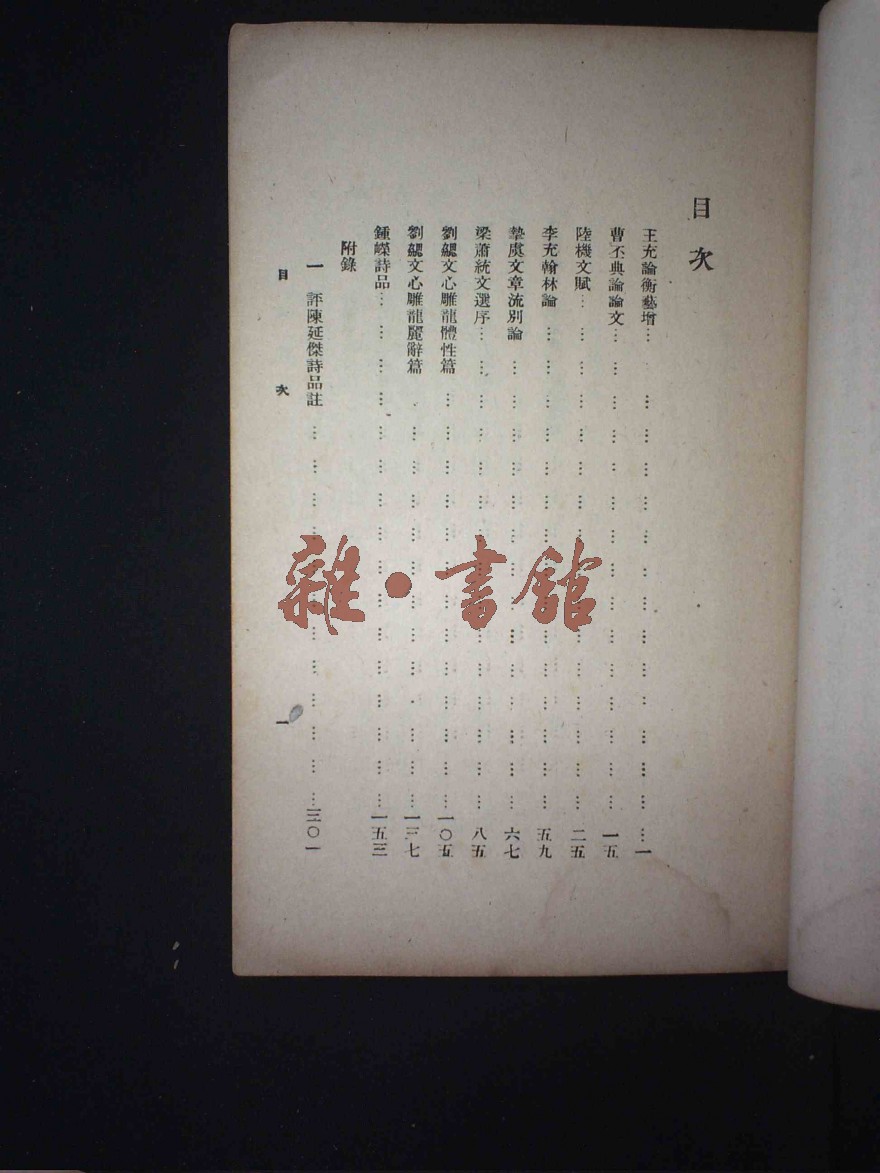 目次
王充論衡藝增… … … … … … … … … … … … … … …一
曹丕典論論文… … … … … … … … … … … … … … …一五
陸機文賦… … … … … … … … … … … … … … … …二五
李充翰林論… … … … … … … … … … … … … … …五九
摯虞文章流別論… … … … … … … … … … … … … …六七
梁蕭統文選序… … … … … … … … … … … … … … …八五
劉勰文心雕龍體性篇… … … … … … … … … … … … …一〇五
劉勰文心雕龍麗辭篇… … … … … … … … … … … … …一三七
鍾嶸詩品… … … … … … … … … … … … … … … …一五三
附錄
一 評陳延傑詩品註… … … … … … … … … … … …三〇一
目次 一
雜·書館